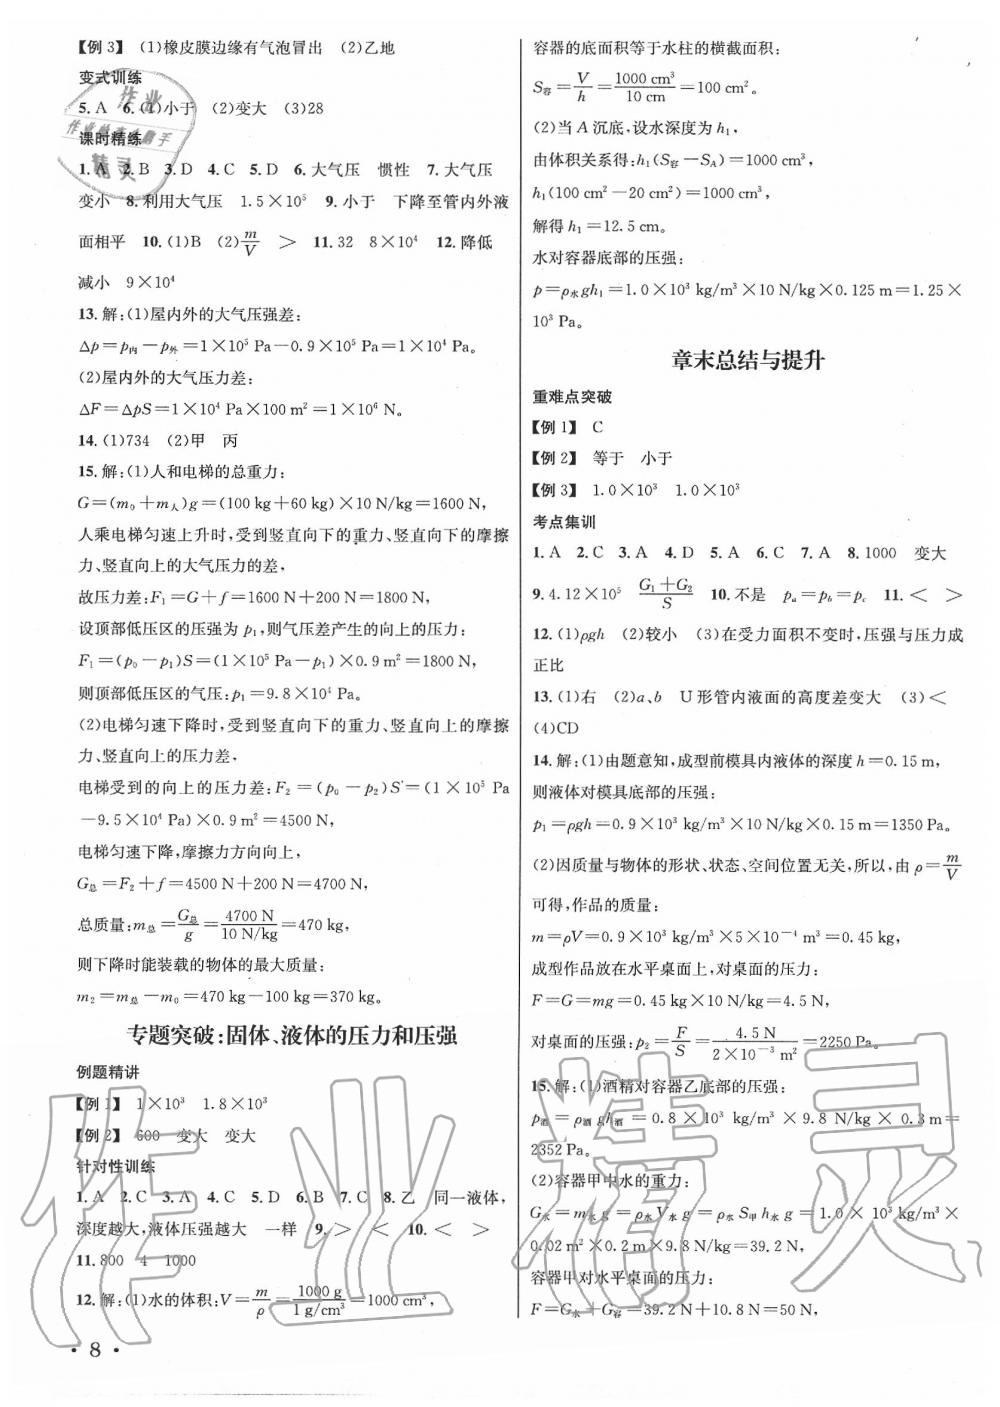 【例3】 (1)橡皮膜边缘有气泡冒出 (2)乙地
变式训练
5. A 6. (1)小于 (2)变大 (3)28
课时精练
1. A 2. B 3. D 4. C 5. D 6. 大气压 惯性 7. 大气压
变小 8. 利用大气压 1.5×10⁵ 9. 小于 下降至管内外液
面相平 10. (1)B (2)m/V > 11. 32 8×10⁴ 12. 降低
减小 9×10⁴
13. 解:(1)屋内外的大气压强差:
△p=p内-p外=1×10⁵ Pa-0.9×10⁵ Pa=1×10⁴ Pa。
(2)屋内外的大气压力差:
△F=△pS=1×10⁴ Pa×100 m²=1×10⁶ N。
14. (1)734 (2)甲 丙
15. 解:(1)人和电梯的总重力:
G=(m₀+m人)g=(100 kg+60 kg)×10 N/kg=1600 N,
人乘电梯匀速上升时,受到竖直向下的重力、竖直向下的摩擦
力、竖直向上的大气压力的差,
故压力差:F₁=G+f=1600 N+200 N=1800 N,
设顶部低压区的压强为 p₁,则气压差产生的向上的压力:
F₁=(p₀-p₁)S=(1×10⁵ Pa-p₁)×0.9 m²=1800 N,
则顶部低压区的气压:p₁=9.8×10⁴ Pa。
(2)电梯匀速下降时,受到竖直向下的重力、竖直向上的摩擦
力、竖直向上的压力差,
电梯受到的向上的压力差:F₂=(p₀-p₂)S=(1×10⁵ Pa
-9.5×10⁴ Pa)×0.9 m²=4500 N,
电梯匀速下降,摩擦力方向向上,
G总=F₂+f=4500 N+200 N=4700 N,
总质量:m总=G总/g=4700 N/10 N/kg=470 kg,
则下降时能装载的物体的最大质量:
m₂=m总-m₀=470 kg-100 kg=370 kg。
专题突破:固体、液体的压力和压强
例题精讲
【例1】 1×10³ 1.8×10³
【例2】 600 变大 变大
针对性训练
1. A 2. C 3. A 4. C 5. D 6. B 7. C 8. 乙 同一液体,
深度越大,液体压强越大 一样 9. > < 10. < >
11. 800 4 1000
12. 解:(1)水的体积:V=m/ρ=1000 g/1 g/cm³=1000 cm³,
· 8 ·
容器的底面积等于水柱的横截面积:
S容=V/h=1000 cm³/10 cm=100 cm²。
(2)当 A 沉底,设水深度为 h₁,
由体积关系得:h₁(S容-S_A)=1000 cm³,
h₁(100 cm²-20 cm²)=1000 cm³,
解得 h₁=12.5 cm。
水对容器底部的压强:
p=ρ水gh₁=1.0×10³ kg/m³×10 N/kg×0.125 m=1.25×
10³ Pa。
章末总结与提升
重难点突破
【例1】 C
【例2】 等于 小于
【例3】 1.0×10³ 1.0×10³
考点集训
1. A 2. C 3. A 4. D 5. A 6. C 7. A 8. 1000 变大
9. 4.12×10⁵ G₁+G₂/S 10. 不是 pₐ=p_b=p_c 11. < >
12. (1)ρgh (2)较小 (3)在受力面积不变时,压强与压力成
正比
13. (1)右 (2)a、b U 形管内液面的高度差变大 (3)<
(4)CD
14. 解:(1)由题意知,成型前模具内液体的深度 h=0.15 m,
则液体对模具底部的压强:
p₁=ρgh=0.9×10³ kg/m³×10 N/kg×0.15 m=1350 Pa。
(2)因质量与物体的形状、状态、空间位置无关,所以,由 ρ=m/V
可得,作品的质量:
m=ρV=0.9×10³ kg/m³×5×10⁻⁴ m³=0.45 kg,
成型作品放在水平桌面上,对桌面的压力:
F=G=mg=0.45 kg×10 N/kg=4.5 N,
对桌面的压强:p₂=F/S=4.5 N/2×10⁻³ m²=2250 Pa。
15. 解:(1)酒精对容器乙底部的压强:
p酒=ρ酒gh酒=0.8×10³ kg/m³×9.8 N/kg×0.3 m=
2352 Pa。
(2)容器甲中水的重力:
G水=m水g=ρ水V水g=ρ水S甲h水g=1.0×10³ kg/m³×
0.02 m²×0.2 m×9.8 N/kg=39.2 N,
容器甲对水平桌面的压力:
F=G水+G容=39.2 N+10.8 N=50 N,
作业精灵